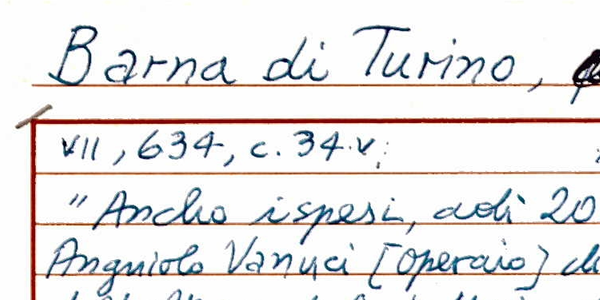 Barna di Turino,
VII, 634, c. 34.v;
"Ancho ispesi, adì 20
Angniolo Vanuci [operaio]